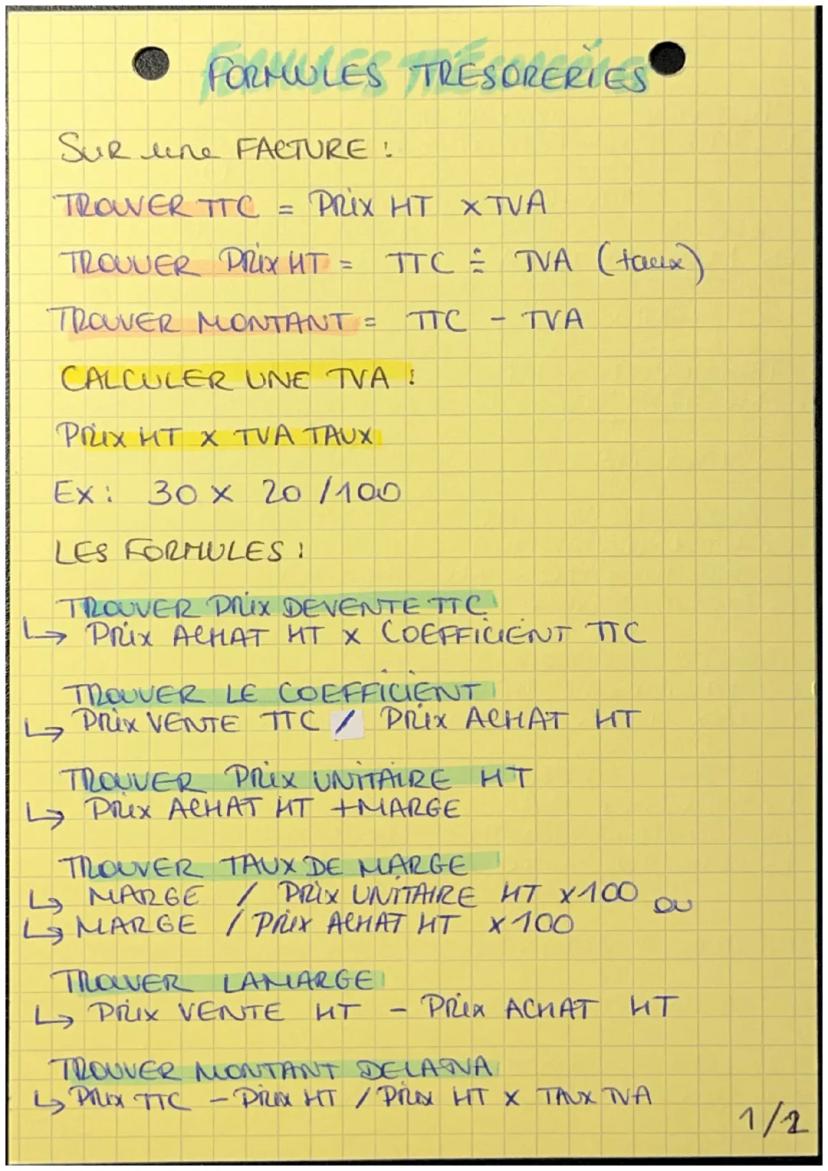 FORMULES TRESORERIES
SUR une FACTURE :
TROUVER TTC = PRIX HT x TVA
TROUVER PRIX HT = TTC ÷ TVA (taux)
TROUVER MONTANT = TTC - TVA
CALCULER UNE TVA :
PRIX HT x TVA TAUX
Ex : 30 x 20 /100
LES FORMULES :
TROUVER PRIX DE VENTE TTC
↳ PRIX ACHAT HT x COEFFICIENT TTC
TROUVER LE COEFFICIENT
↳ PRIX VENTE TTC / PRIX ACHAT HT
TROUVER PRIX UNITAIRE HT
↳ PRIX ACHAT HT + MARGE
TROUVER TAUX DE MARGE
↳ MARGE / PRIX UNITAIRE HT x100 OU
↳ MARGE / PRIX ACHAT HT x100
TROUVER LA MARGE
↳ PRIX VENTE HT - PRIX ACHAT HT
TROUVER MONTANT DE LA TVA
↳ PRIX TTC - PRIX HT / PRIX HT x TAUX TVA
1/2